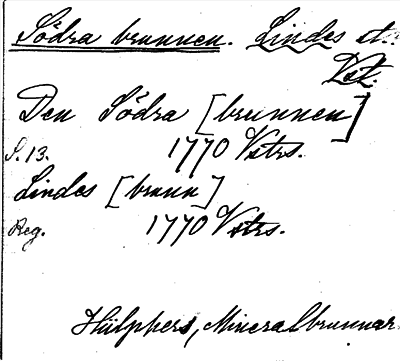 Södra brunnen. Lindes st.:
Vst.
Den Södra [brunnen]
S. 13. 1770 Vstrs.
Lindes [brunn]
Reg. 1770 Vstrs.
Hülphers, Mineralbrunnar